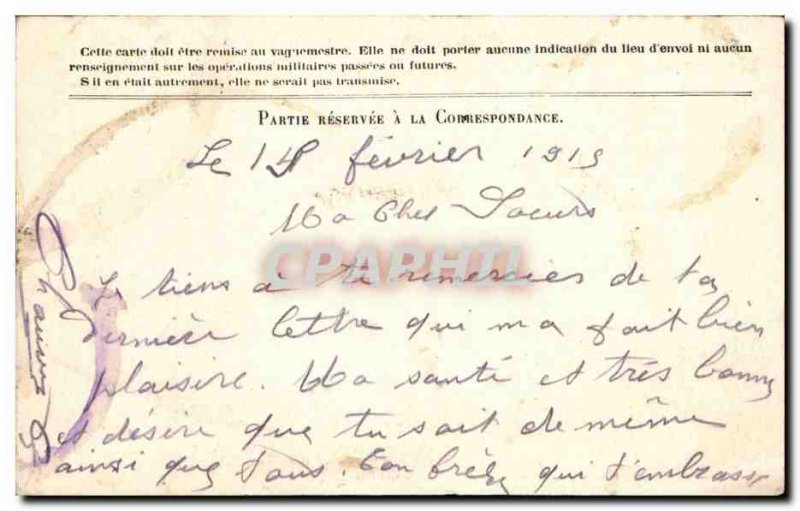 Cette carte doit être remise au vaguemestre. Elle ne doit porter aucune indication du lieu d'envoi ni aucun
renseignement sur les opérations militaires passées ou futures.
S'il en était autrement, elle ne serait pas transmise.
PARTIE RÉSERVÉE À LA CORRESPONDANCE.
Le 14 février 1915
Ma Cher Soeurs
CPAPHIL
Je tiens a te remercies de ta
dernière lettre qui m a fait bien
plaisire. Ma santé et très bonne
et désire que tu sait de même
ainsi que tous. Ton brère qui t'embrasse